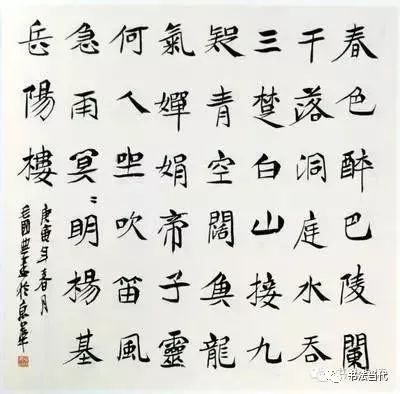 春色醉巴陵闌
干落洞庭水吞
三楚白山接九
疑青空闊魚龍
氣嬋娟帝子靈
何人坐吹笛風
急雨冥〻明楊基
岳陽樓
庚寅年春月
國書於京華
书法当代